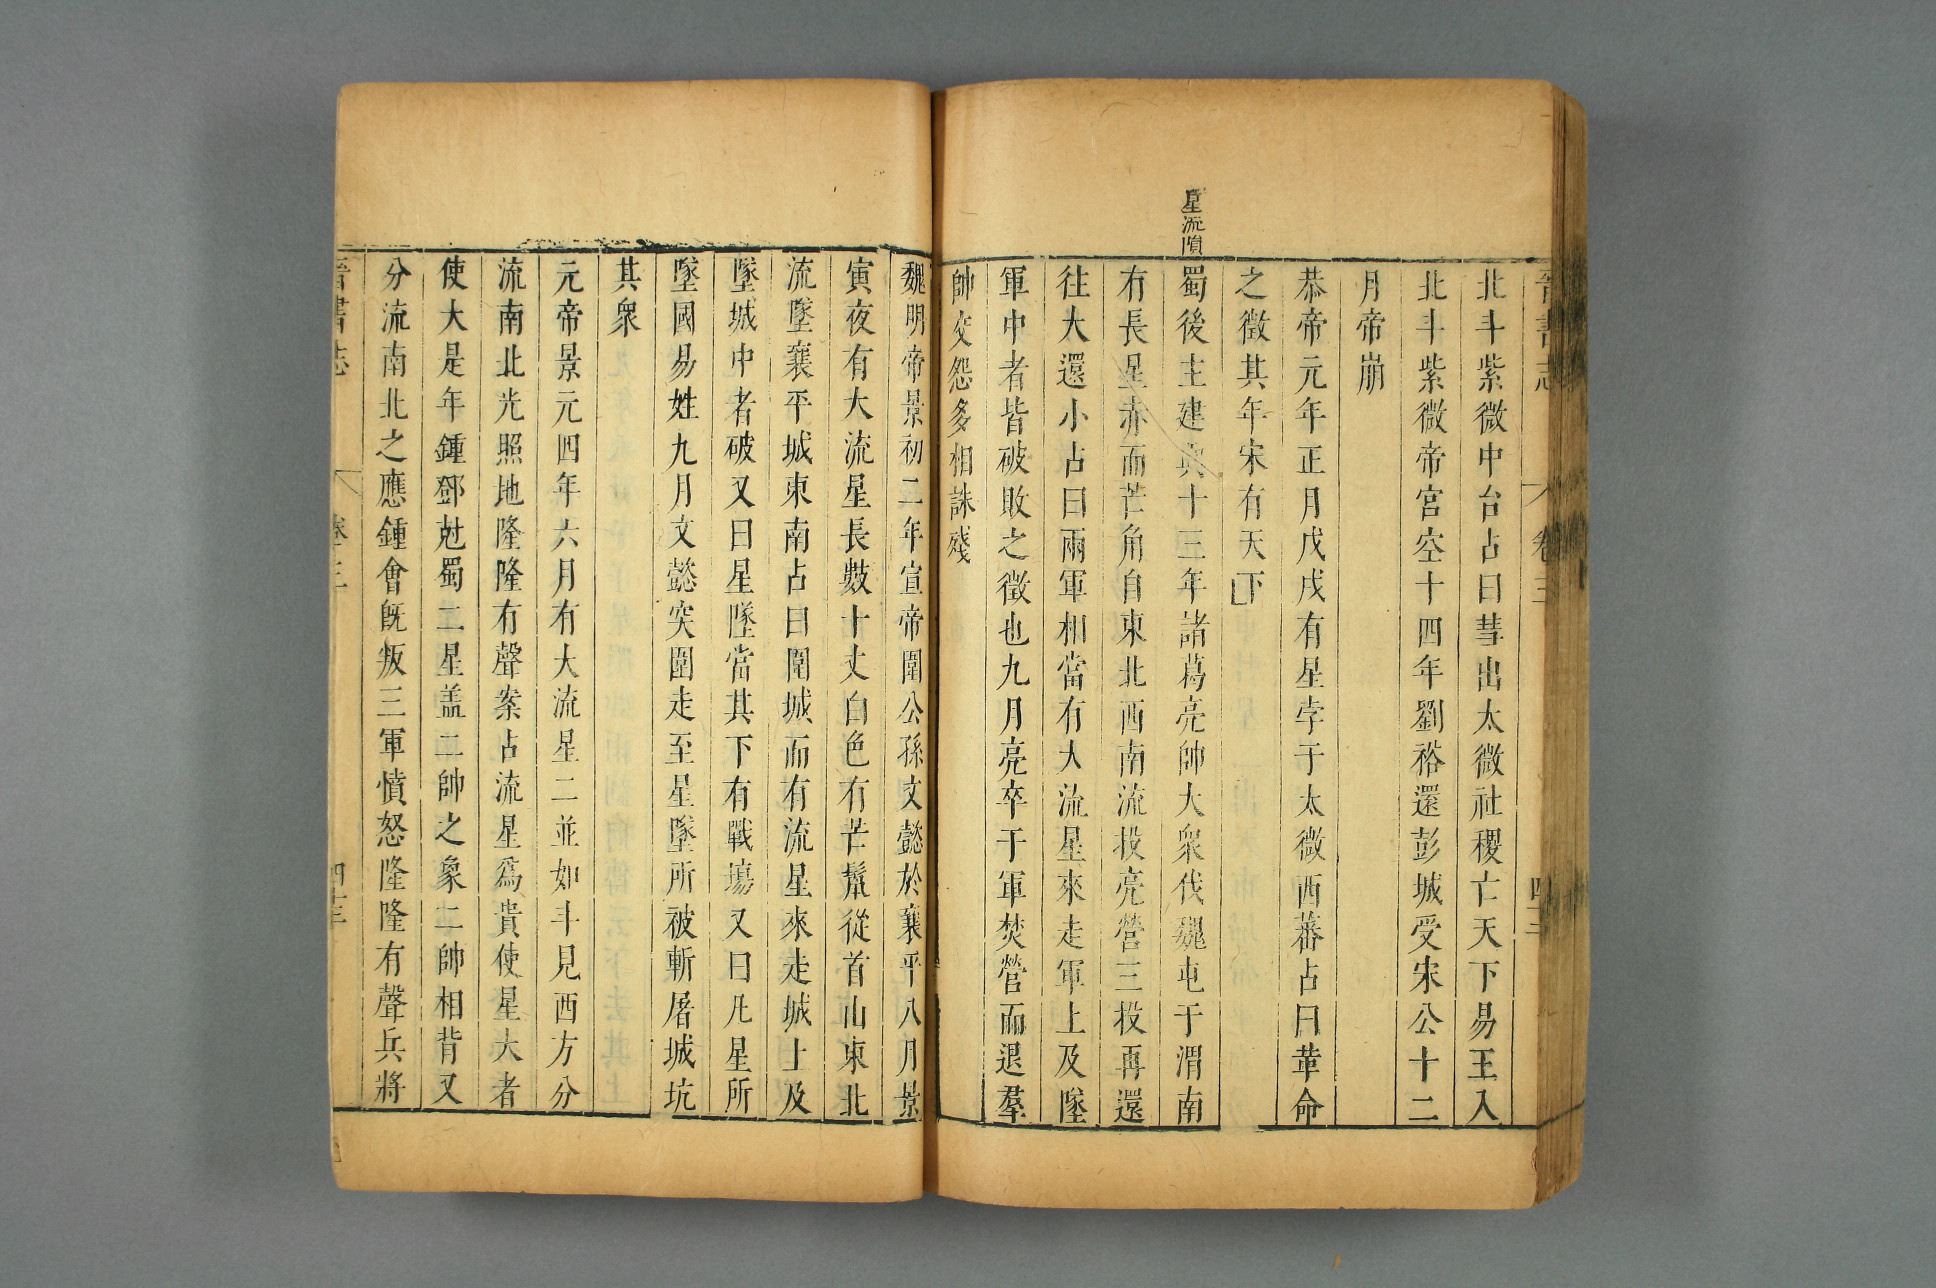 晉書志 卷三 四十二
北斗紫微中台占曰彗出太微社稷亡天下易王入
北斗紫微帝宮空十四年劉裕還彭城受宋公十二
月帝崩
恭帝元年正月戊戌有星孛于太微西蕃占曰革命
之徵其年宋有天下
星流隕
蜀後主建興十三年諸葛亮帥大衆伐魏屯于渭南
有長星赤而芒角自東北西南流投亮營三投再還
往大還小占曰兩軍相當有大流星來走軍上及墜
軍中者皆破敗之徵也九月亮卒于軍焚營而退羣
帥交怨多相誅殘
魏明帝景初二年宣帝圍公孫文懿於襄平八月景
寅夜有大流星長數十丈白色有芒鬛從首山東北
流墜襄平城東南占曰圍城而有流星來走城上及
墜城中者破又曰星墜當其下有戰場又曰凡星所
墜國易姓九月文懿突圍走至星墜所被斬屠城坑
其衆
元帝景元四年六月有大流星二並如斗見西方分
流南北光照地隆隆有聲案占流星爲貴使星大者
使大是年鍾鄧尅蜀二星盖二帥之象二帥相背又
分流南北之應鍾會旣叛三軍憤怒隆隆有聲兵將
晉書志 卷三 四十三